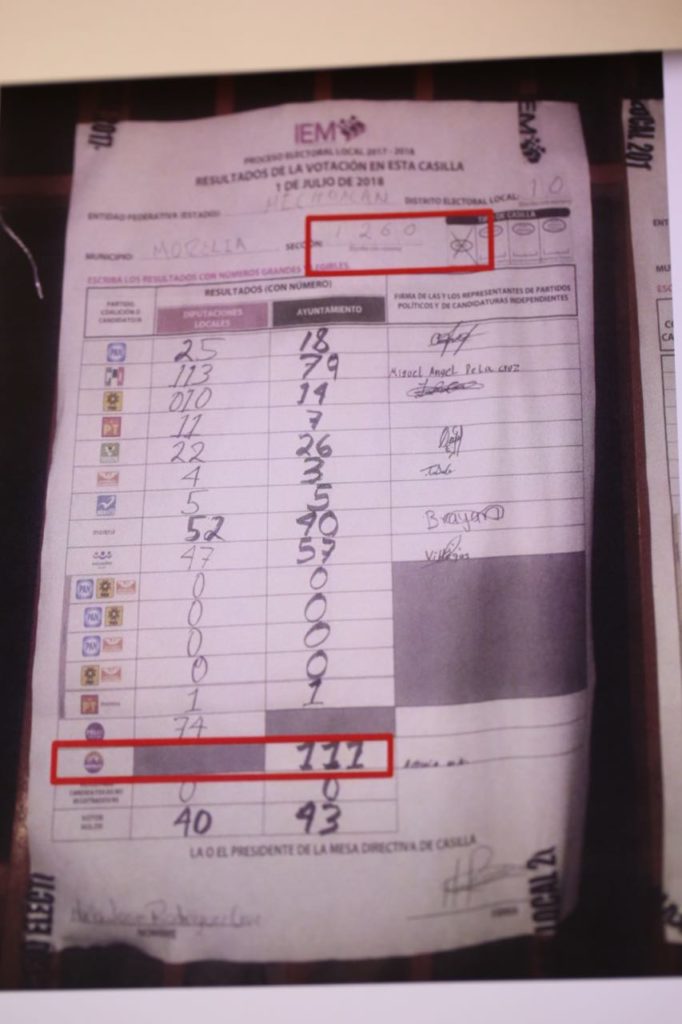 IEM
PROCESO ELECTORAL LOCAL 2017 - 2018
RESULTADOS DE LA VOTACIÓN EN ESTA CASILLA
1 DE JULIO DE 2018
ENTIDAD FEDERATIVA (ESTADO): MICHOACAN DISTRITO ELECTORAL LOCAL: 10
MUNICIPIO: MORELIA SECCIÓN: 1260 CASILLA
ESCRIBA LOS RESULTADOS CON NÚMEROS GRANDES
RESULTADOS (CON NÚMERO)
PARTIDO, COALICIÓN O CANDIDATO/A DIPUTACIONES LOCALES AYUNTAMIENTO FIRMA DE LAS Y LOS REPRESENTANTES DE PARTIDOS POLÍTICOS Y DE CANDIDATURAS INDEPENDIENTES
PAN 25 18
PRI 113 79 Miguel Angel De La Cruz
PRD 010 14
PT 11 7
22 26
4 3
5 5
morena 52 40 Brayan
47 57
PAN PRD 0 0
PAN PRD 0 0
PAN 0 0
0 0
PT morena 1 1
74
111
CANDIDATOS/AS NO REGISTRADOS/AS 0 0
VOTOS NULOS 40 43
LA O EL PRESIDENTE DE LA MESA DIRECTIVA DE CASILLA
NOMBRE FIRMA
ELECTI
LOCAL 2
IEM
2017
OCAL 201